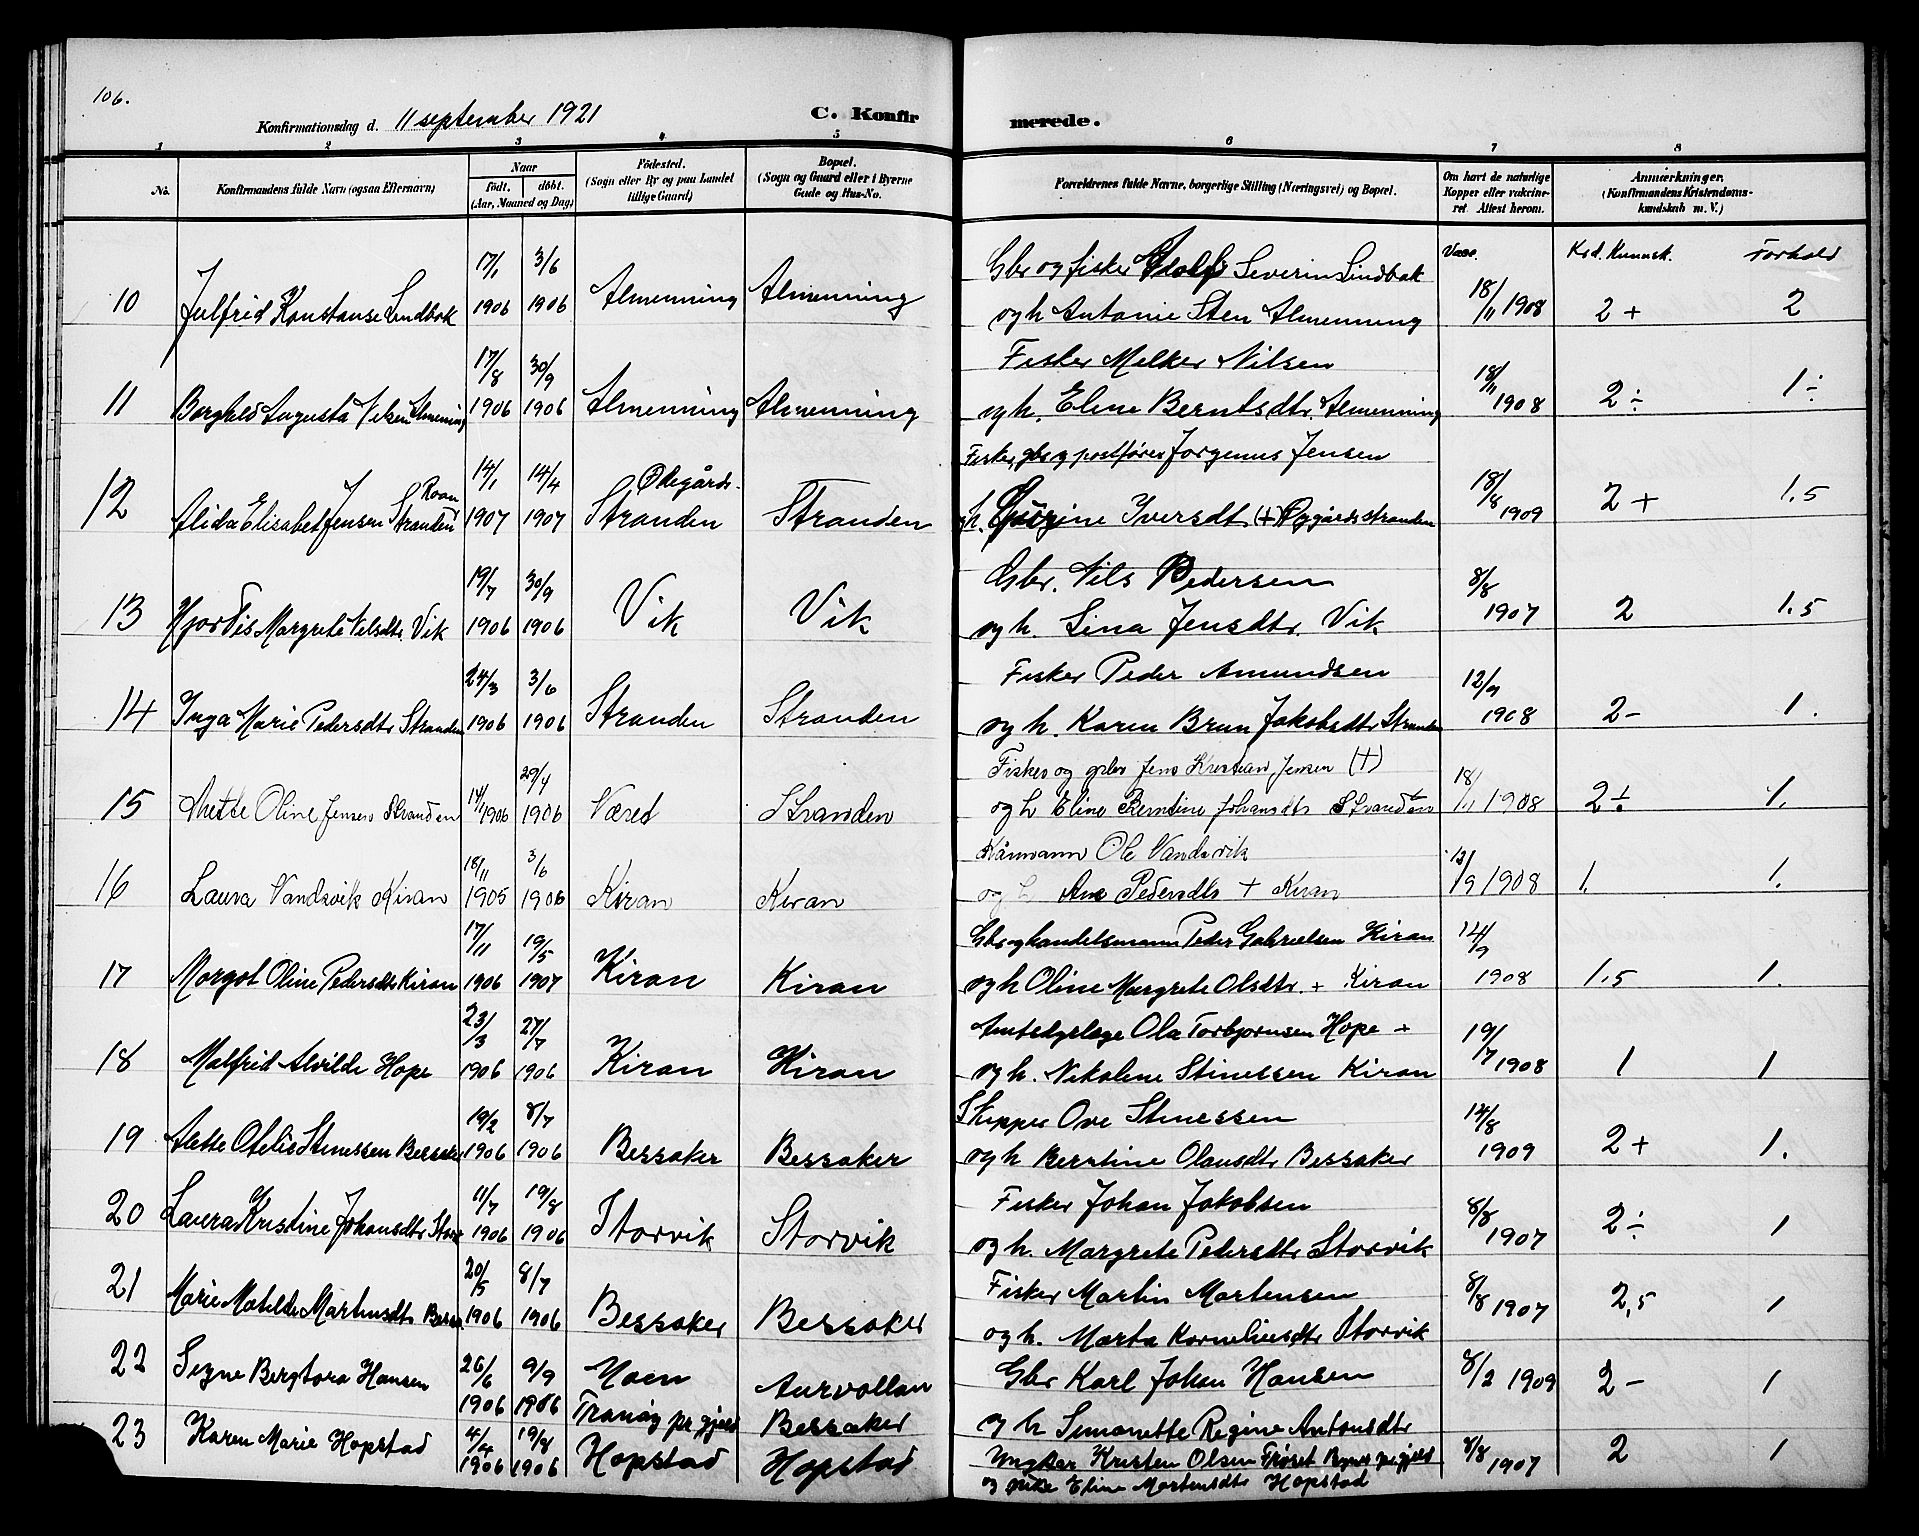 106.
Konfirmationsdag d. 11 september 1921
C. Konfirmerede.
1 2 3 4 5 6 7 8
No. Konfirmandens fulde Navn (ogsaa Efternavn). Naar født. døbt. (Aar, Maaned og Dag) Födested. (Sogn eller By og paa Landet tillige Gaard) Bopæl. (Sogn og Gaard eller i Byerne Gade og Hus-No. Forældrenes fulde Navne, borgerlige Stilling (Næringsvei) og Bopæl. Om havt de naturlige Kopper eller vakcineret. Attest herom. Anmærkninger. (Konfirmandens Kristendomskundskab m. V.)
Vacc. Krd. Kunnsk. Forhold
17/1 3/6 Gbr og fisker Adolf Severin Lindbak
10 Julfrid Konstanse Lindbak 1906 1906 Almenning Almenning og h Antonie Sten Almenning 18/11 1908 2+ 2
17/8 30/9 Fisker Melker Nilsen
11 Borghild Augusta Nilsen Almenning 1906 1906 Almenning Almenning og h. Eline Berntsdtr. Almenning 18/11 1908 2÷ 1÷
14/1 14/4 Ødegårds- Fisker, gbr og postfører Jorgenus Jensen
12 Alida Elisabet Jensen Stranden Roan 1907 1907 Stranden Stranden og h. Iversdt (+) Øygårdsstranden 18/8 1909 2+ 1.5
19/7 30/9 Gbr. Nils Pedersen
13 Hjordis Margrete Nilsdtr. Vik 1906 1906 Vik Vik og h. Lina Jensdtr. Vik 8/8 1907 2 1.5
24/3 3/6 Fisker Peder Amundsen
14 Inga Marie Pedersdtr Stranden 1906 1906 Stranden Stranden og h. Karen Brun Jakobsdtr Stranden 12/9 1908 2- 1.
29/4 Fisker og gbr Jens Kristian Jensen (+)
15 Anette Oline Jensen Stranden 14/1 1906 1906 Været Stranden og h Eline Berntine Johansdtr Stranden 18/11 1908 2÷ 1.
18/11 3/6 Kårmann Ole Vandsvik
16 Laura Vandsvik Kiran 1905 1906 Kiran Kiran og h Ane Pedersdtr + Kiran 12/9 1908 1. 1.
17/11 19/5 Gbr og handelsmann Peder Gabrielsen Kiran
17 Margot Oline Pedersdtr Kiran 1906 1907 Kiran Kiran og h Oline Margrete Olsdtr. + Kiran 14/9 1908 1.5 1.
23/3 27/7 Amtdyrlæge Ola Torbjornsen Hope +
18 Malfrid Alvilde Hope 1906 1906 Kiran Kiran og h. Nikoline Stinessen Kiran 19/7 1908 1 1
19/2 8/7 Skipper Ove Stinessen
19 Anette Otelie Stinessen Bessaker 1906 1906 Bessaker Bessaker og h Berntine Olausdtr Bessaker 14/8 1909 2+ 1.
11/7 19/8 Fisker Johan Jakobsen
20 Laura Kristine Johansdtr Storv 1906 1906 Storvik Storvik og h. Margrete Pedersdtr Storvik 8/8 1907 2÷ 1
20/5 8/7 Fisker Martin Mortensen
21 Marie Matilde Martinsdtr Bessa. 1906 1906 Bessaker Bessaker og h. Marta Korneliusdtr Storvik 8/8 1907 2,5 1
22 Signe Bergtora Hansen 26/6 1906 9/9 1906 Moen Tranøy pr.gjeld Aurvollan Bessaker Gbr Karl Johan Hansen 8/2 1909 2- 1
og h Simonette Regine Antonsdtr
23 Karen Marie Hopstad 4/4 1906 19/8 1906 Hopstad Hopstad Ungkar Kristen Olsen Frøset pr.gjeld 8/8 1907 2 1
og pike Eline Mortensdtr Hopstad